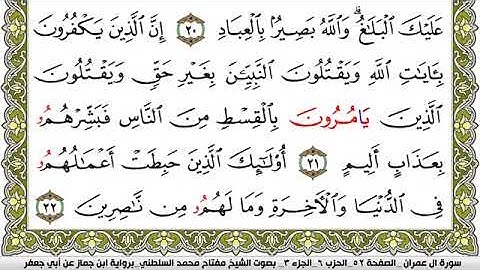 عَلَيْكَ ٱلْبَلَٰغُۗ وَٱللَّهُ بَصِيرُۢ بِٱلْعِبَادِ ٢٠ إِنَّ ٱلَّذِينَ يَكْفُرُونَ
بِـَٔايَٰتِ ٱللَّهِ وَيَقْتُلُونَ ٱلنَّبِيِّـۧنَ بِغَيْرِ حَقٍّ وَيَقْتُلُونَ
ٱلَّذِينَ يَامُرُونَ بِٱلْقِسْطِ مِنَ ٱلنَّاسِ فَبَشِّرْهُمُۥ
بِعَذَابٍ أَلِيمٍ ٢١ أُوْلَٰٓئِكَ ٱلَّذِينَ حَبِطَتْ أَعْمَٰلُهُمُۥ
فِي ٱلدُّنْيَا وَٱلْأٓخِرَةِ وَمَا لَهُمُۥ مِن نَّٰصِرِينَ ٢٢
سورة ال عمران _الصفحة ٥٢_ الحزب ٦_ الجزء ٣_ بصوت الشيخ مفتاح محمد السلطني_برواية ابن جماز عن أبي جعفر